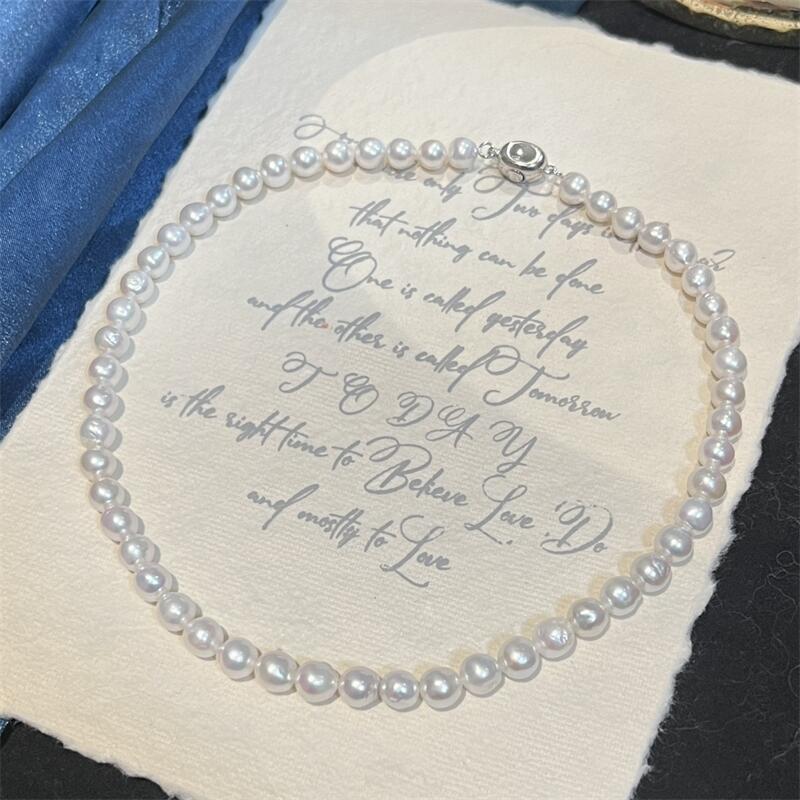 only Two days
that nothing can be done
One is called yesterday
and the other is called Tomorrow
TODAY
is the right time to Believe Love, Do
and mostly to Love